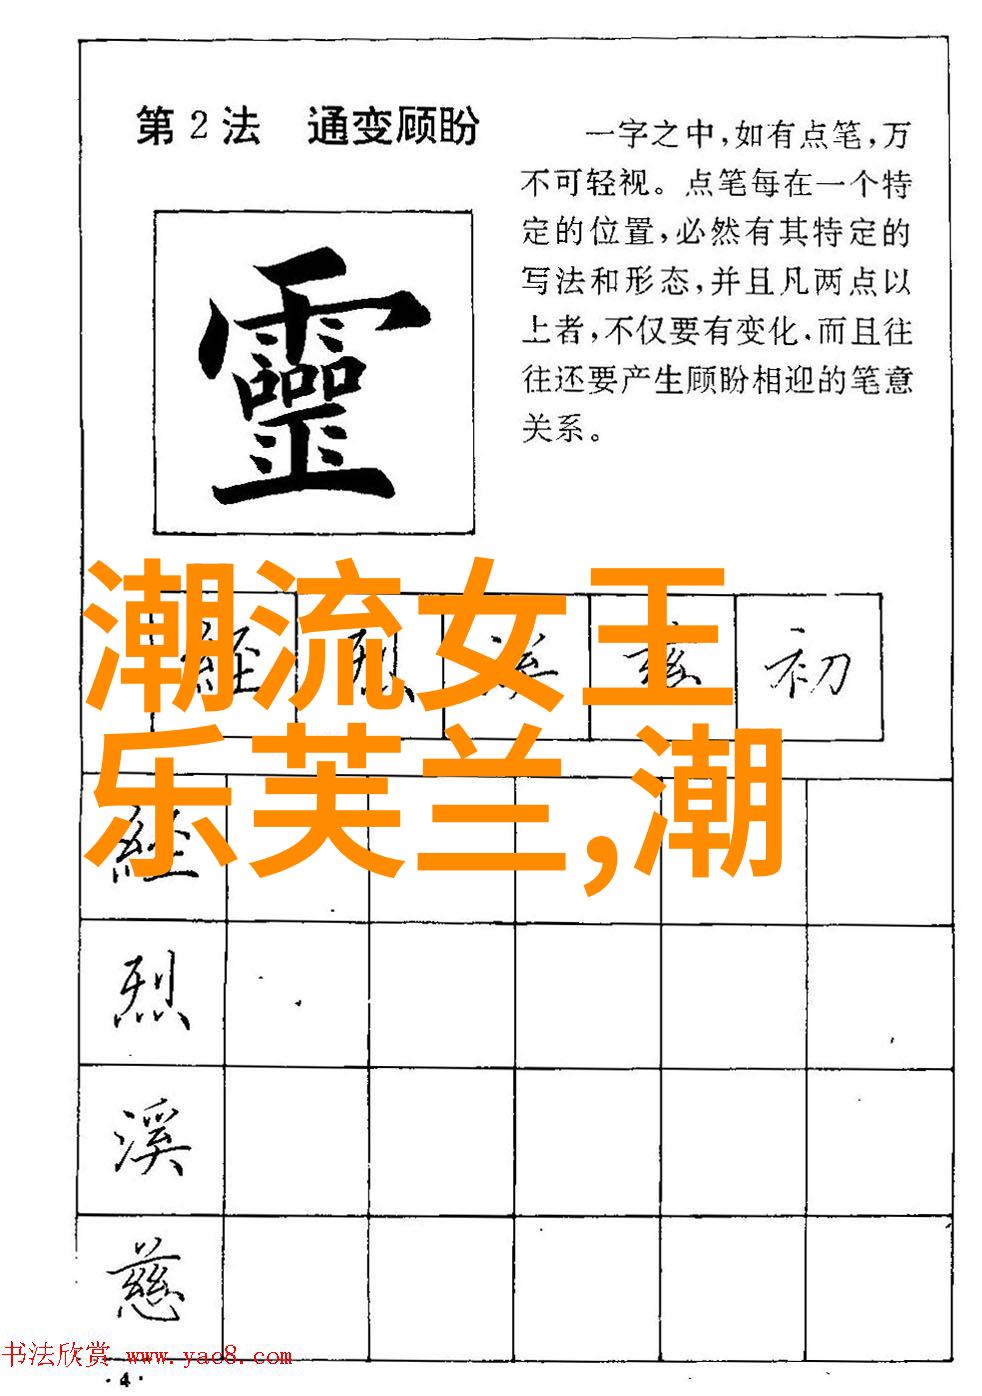 第2法 通变顾盼
一字之中,如有点笔,万
不可轻视。点笔每在一个特
定的位置,必然有其特定的
写法和形态,并且凡两点以
上者,不仅要有变化.而且往
往还要产生顾盼相迎的笔意
关系。
靈
潮流女王
乐芙兰,潮
經 烈 溪 慈 初
經
烈
溪
慈
书法欣赏 www.yac8.com
·4·